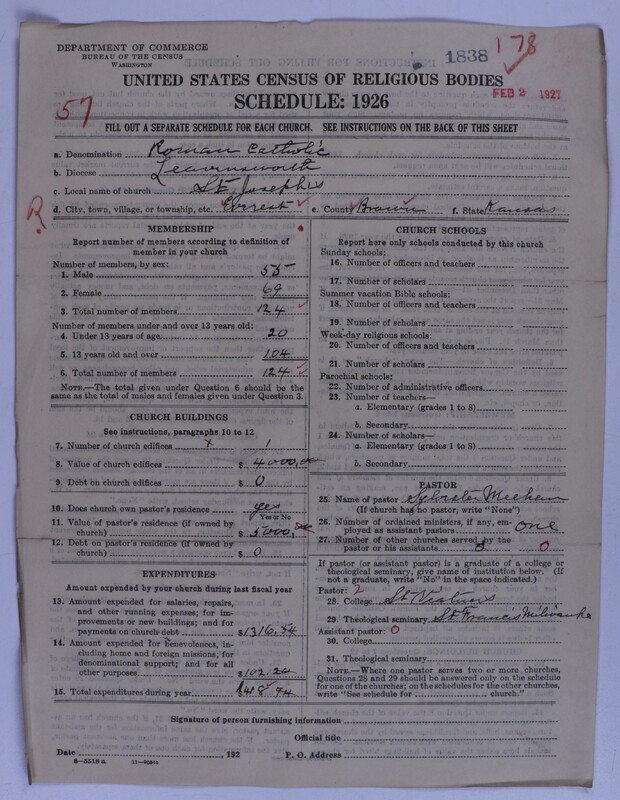 DEPARTMENT OF COMMERCE
BUREAU OF THE CENSUS
WASHINGTON
1838
178
UNITED STATES CENSUS OF RELIGIOUS BODIES
SCHEDULE: 1926
FEB 2 1927
57
FILL OUT A SEPARATE SCHEDULE FOR EACH CHURCH. SEE INSTRUCTIONS ON THE BACK OF THIS SHEET
a. Denomination Roman Catholic
b. Diocese Leavensworth
c. Local name of church St. Josephs
R
d. City, town, village, or township, etc. Everest e. County Brown f. State Kansas
MEMBERSHIP
Report number of members according to definition of
member in your church
Number of members, by sex:
1. Male 55
2. Female 69
3. Total number of members 124
Number of members under and over 13 years old:
4. Under 13 years of age 20
5. 13 years old and over 104
6. Total number of members 124
NOTE.—The total given under Question 6 should be
same as the total of males and females given under Question 3.
CHURCH BUILDINGS
See instructions, paragraphs 10 to 12
7. Number of church edifices x 1
8. Value of church edifices $ 4000,
9. Debt on church edifices $ 0
10. Does church own pastor's residence yes
Yes or No
11. Value of pastor's residence (if owned by
church) $ 3000,
12. Debt on pastor's residence (if owned by
church) $ 0
EXPENDITURES
Amount expended by your church during last fiscal year
13. Amount expended for salaries, repairs,
and other running expenses; for im-
provements or new buildings; and for
payments on church debt $1316.54
14. Amount expended for benevolences, in-
cluding home and foreign missions; for
denominational support; and for all
other purposes $102.20
15. Total expenditures during year 74
CHURCH SCHOOLS
Report here only schools conducted by this church
Sunday schools:
16. Number of officers and teachers
17. Number of scholars
Summer vacation Bible schools:
18. Number of officers and teachers
19. Number of scholars
Week-day religious schools:
20. Number of officers and teachers
21. Number of scholars
Parochial schools:
22. Number of administrative officers
23. Number of teachers—
a. Elementary (grades 1 to 8)
b. Secondary
24. Number of scholars—
a. Elementary (grades 1 to 8)
b. Secondary
PASTOR
25. Name of pastor Sylvester Meehan
(If church has no pastor, write "None")
26. Number of ordained ministers, if any, em-
ployed as assistant pastors one
27. Number of other churches served by the
pastor or his assistants 0 0
If pastor (or assistant pastor) is a graduate of a college or
theological seminary, give name of institution below. (If
not a graduate, write "No" in the space indicated.)
Pastor: 2
28. College St Viators
29. Theological seminary St Francis
Assistant pastor: 0
30. College
31. Theological seminary
NOTE.—Where one pastor serves two or more churches,
Questions 28 and 29 should be answered only on the schedule
for one of the churches; on the schedules for the other churches,
write "See schedule for church."
Signature of person furnishing information
Official title
Date , 192 P. O. Address